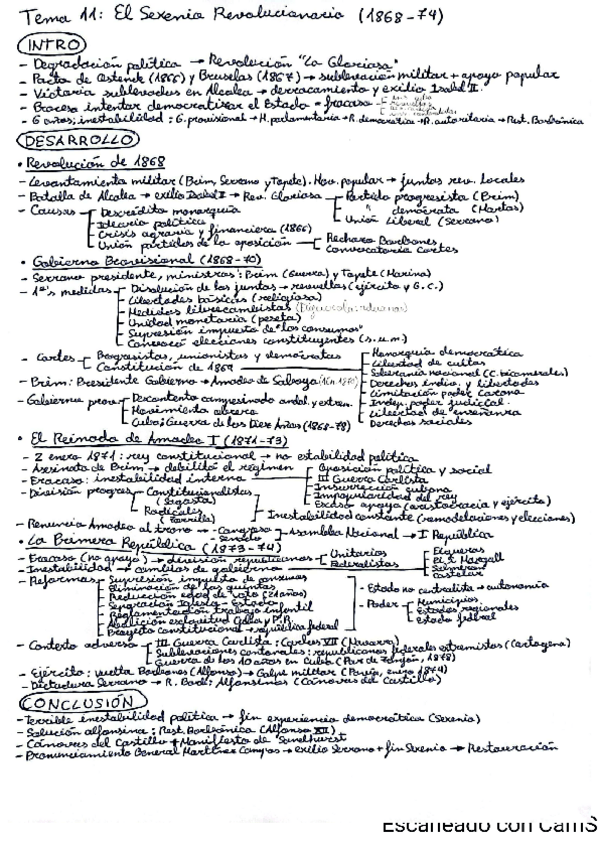 Tema 11: El Sexenio Revolucionario (1868-74)
INTRO
- Degradación política → Revolución "La Gloriosa"
- Pacto de Ostende (1866) y Bruselas (1867) → sublevación militar + apoyo popular
- Victoria sublevados en Alcolea → derrocamiento y exilio Isabel II.
- Proceso intentar democratizar el Estado → fracaso
- 6 años; inestabilidad: G. provisional → M. parlamentaria → R. democrática → R. autoritaria → Rest. Borbónica
DESARROLLO
• Revolución de 1868
- Levantamiento militar (Prim, Serrano y Topete). Mov. popular → juntas rev. locales
- Batalla de Alcolea → exilio Isabel II → Rev. Gloriosa
Partido progresista (Prim)
" demócrata (Martos)
Unión Liberal (Serrano)
- Causas
Descrédito monarquía
Ideario político
Crisis agraria y financiera (1866)
Unión partidos de la oposición
Rechazo Borbones
Convocatoria Cortes
• Gobierno Provisional (1868-70)
- Serrano presidente, ministros: Prim (Guerra) y Topete (Marina)
- 1ªs medidas
Disolución de las juntas → revueltas (ejército y G.C.)
Libertades básicas (religiosa)
Medidas librecambistas
Unidad monetaria (peseta)
Supresión impuesto de "los consumos"
Convocó elecciones constituyentes (s.u.m.)
- Cortes
Progresistas, unionistas y demócratas
Constitución de 1869
Monarquía democrática
Libertad de cultos
Soberanía nacional (C. bicamerales)
Derechos indiv. y libertades
Limitación poder Corona
Indep. poder judicial
Libertad de enseñanza
Derechos sociales
- Prim: Presidente Gobierno → Amadeo de Saboya
- Gobierno prov.
Descontento campesinado andal. y extrem.
Movimiento obrero
Cuba: Guerra de los Diez Años (1868-78)
• El Reinado de Amadeo I (1871-73)
- 2 enero 1871: rey constitucional → no estabilidad política
- Asesinato de Prim → debilitó el régimen
- Fracaso: inestabilidad interna
Oposición política y social
III Guerra Carlista
Insurrección cubana
Impopularidad del rey
Escaso apoyo (aristocracia y ejército)
Inestabilidad constante (remodelaciones y elecciones)
- División progres.
Constitucionalistas
(Sagasta)
Radicales
(Zorrilla)
- Renuncia Amadeo al trono
Congreso
Senado
Asamblea Nacional → I República
• La Primera República (1873-74)
- Fracaso (no apoyo) → división republicanos
Unitarios
Federalistas
- Inestabilidad → cambios de gobierno
Figueras
Pi y Margall
Salmerón
Castelar
- Reformas
Supresión impuesto de consumos
Eliminación de las quintas
Reducción edad de voto (21 años)
Separación Iglesia - Estado
Reglamentación trabajo infantil
Abolición esclavitud Cuba y P.R.
Proyecto constitucional → república federal
- Estado no centralista → autonomía
- Poder
Municipios
Estados regionales
Estado federal
- Contexto adverso
III Guerra Carlista: Carlos VII (Navarra)
Sublevaciones cantonales: republicanos federales extremistas (Cartagena)
Guerra de los 10 años en Cuba (Paz de Zanjón, 1878)
- Ejército: vuelta Borbones (Alfonso) → Golpe militar (Pavía, enero 1874)
- Dictadura Serrano → R. Borb: Alfonsinos (Cánovas del Castillo)
CONCLUSIÓN
- Terrible inestabilidad política → fin experiencia democrática (Sexenio)
- Solución alfonsina: Rest. Borbónica (Alfonso XII)
- Cánovas del Castillo + Manifiesto de Sandhurst
- Pronunciamiento General Martínez Campos → exilio Serrano + fin Sexenio → Restauración
Escaneado con CamS